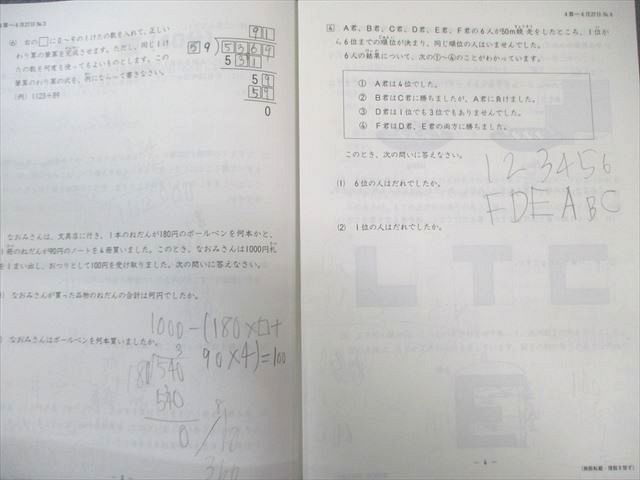 4算―4月27日 No.3
右の□に2~9の1けたの数を入れて、正しい
わり算の筆算を完成させます。ただし、同じ1け
たの数を何度も使ってもよいものとします。この
筆算のわり算の式を、例にならって書きなさい。
(例) 1123÷89
91
59)5369
531
59
59
0
なおみさんは、文具店に行き、1本のねだんが180円のボールペンを何本かと、
1冊のねだんが90円のノートを4冊買いました。このとき、なおみさんは1000円札
をしまい出し、おつりとして100円を受け取りました。次の問いに答えなさい。
なおみさんが買った品物のねだんの合計は何円でしたか。
なおみさんはボールペンを何本買いましたか。
1000-(180×□+
90×4)=100
3
180)540
540
0
4算―4月27日 No.4
4 A君、B君、C君、D君、E君、F君の6人が50m競走をしたところ、1位か
ら6位までの順位が決まり、同じ順位の人はいませんでした。
6人の結果について、次の①~④のことがわかっています。
① A君は4位でした。
② B君はC君に勝ちましたが、A君に負けました。
③ D君は1位でも3位でもありませんでした。
④ F君はD君、E君の両方に勝ちました。
このとき、次の問いに答えなさい。
(1) 6位の人はだれでしたか。
1 2 3 4 5 6
F D E A B C
(2) 1位の人はだれでしたか。
― 4 ―
(無断転載・複製を禁ず)